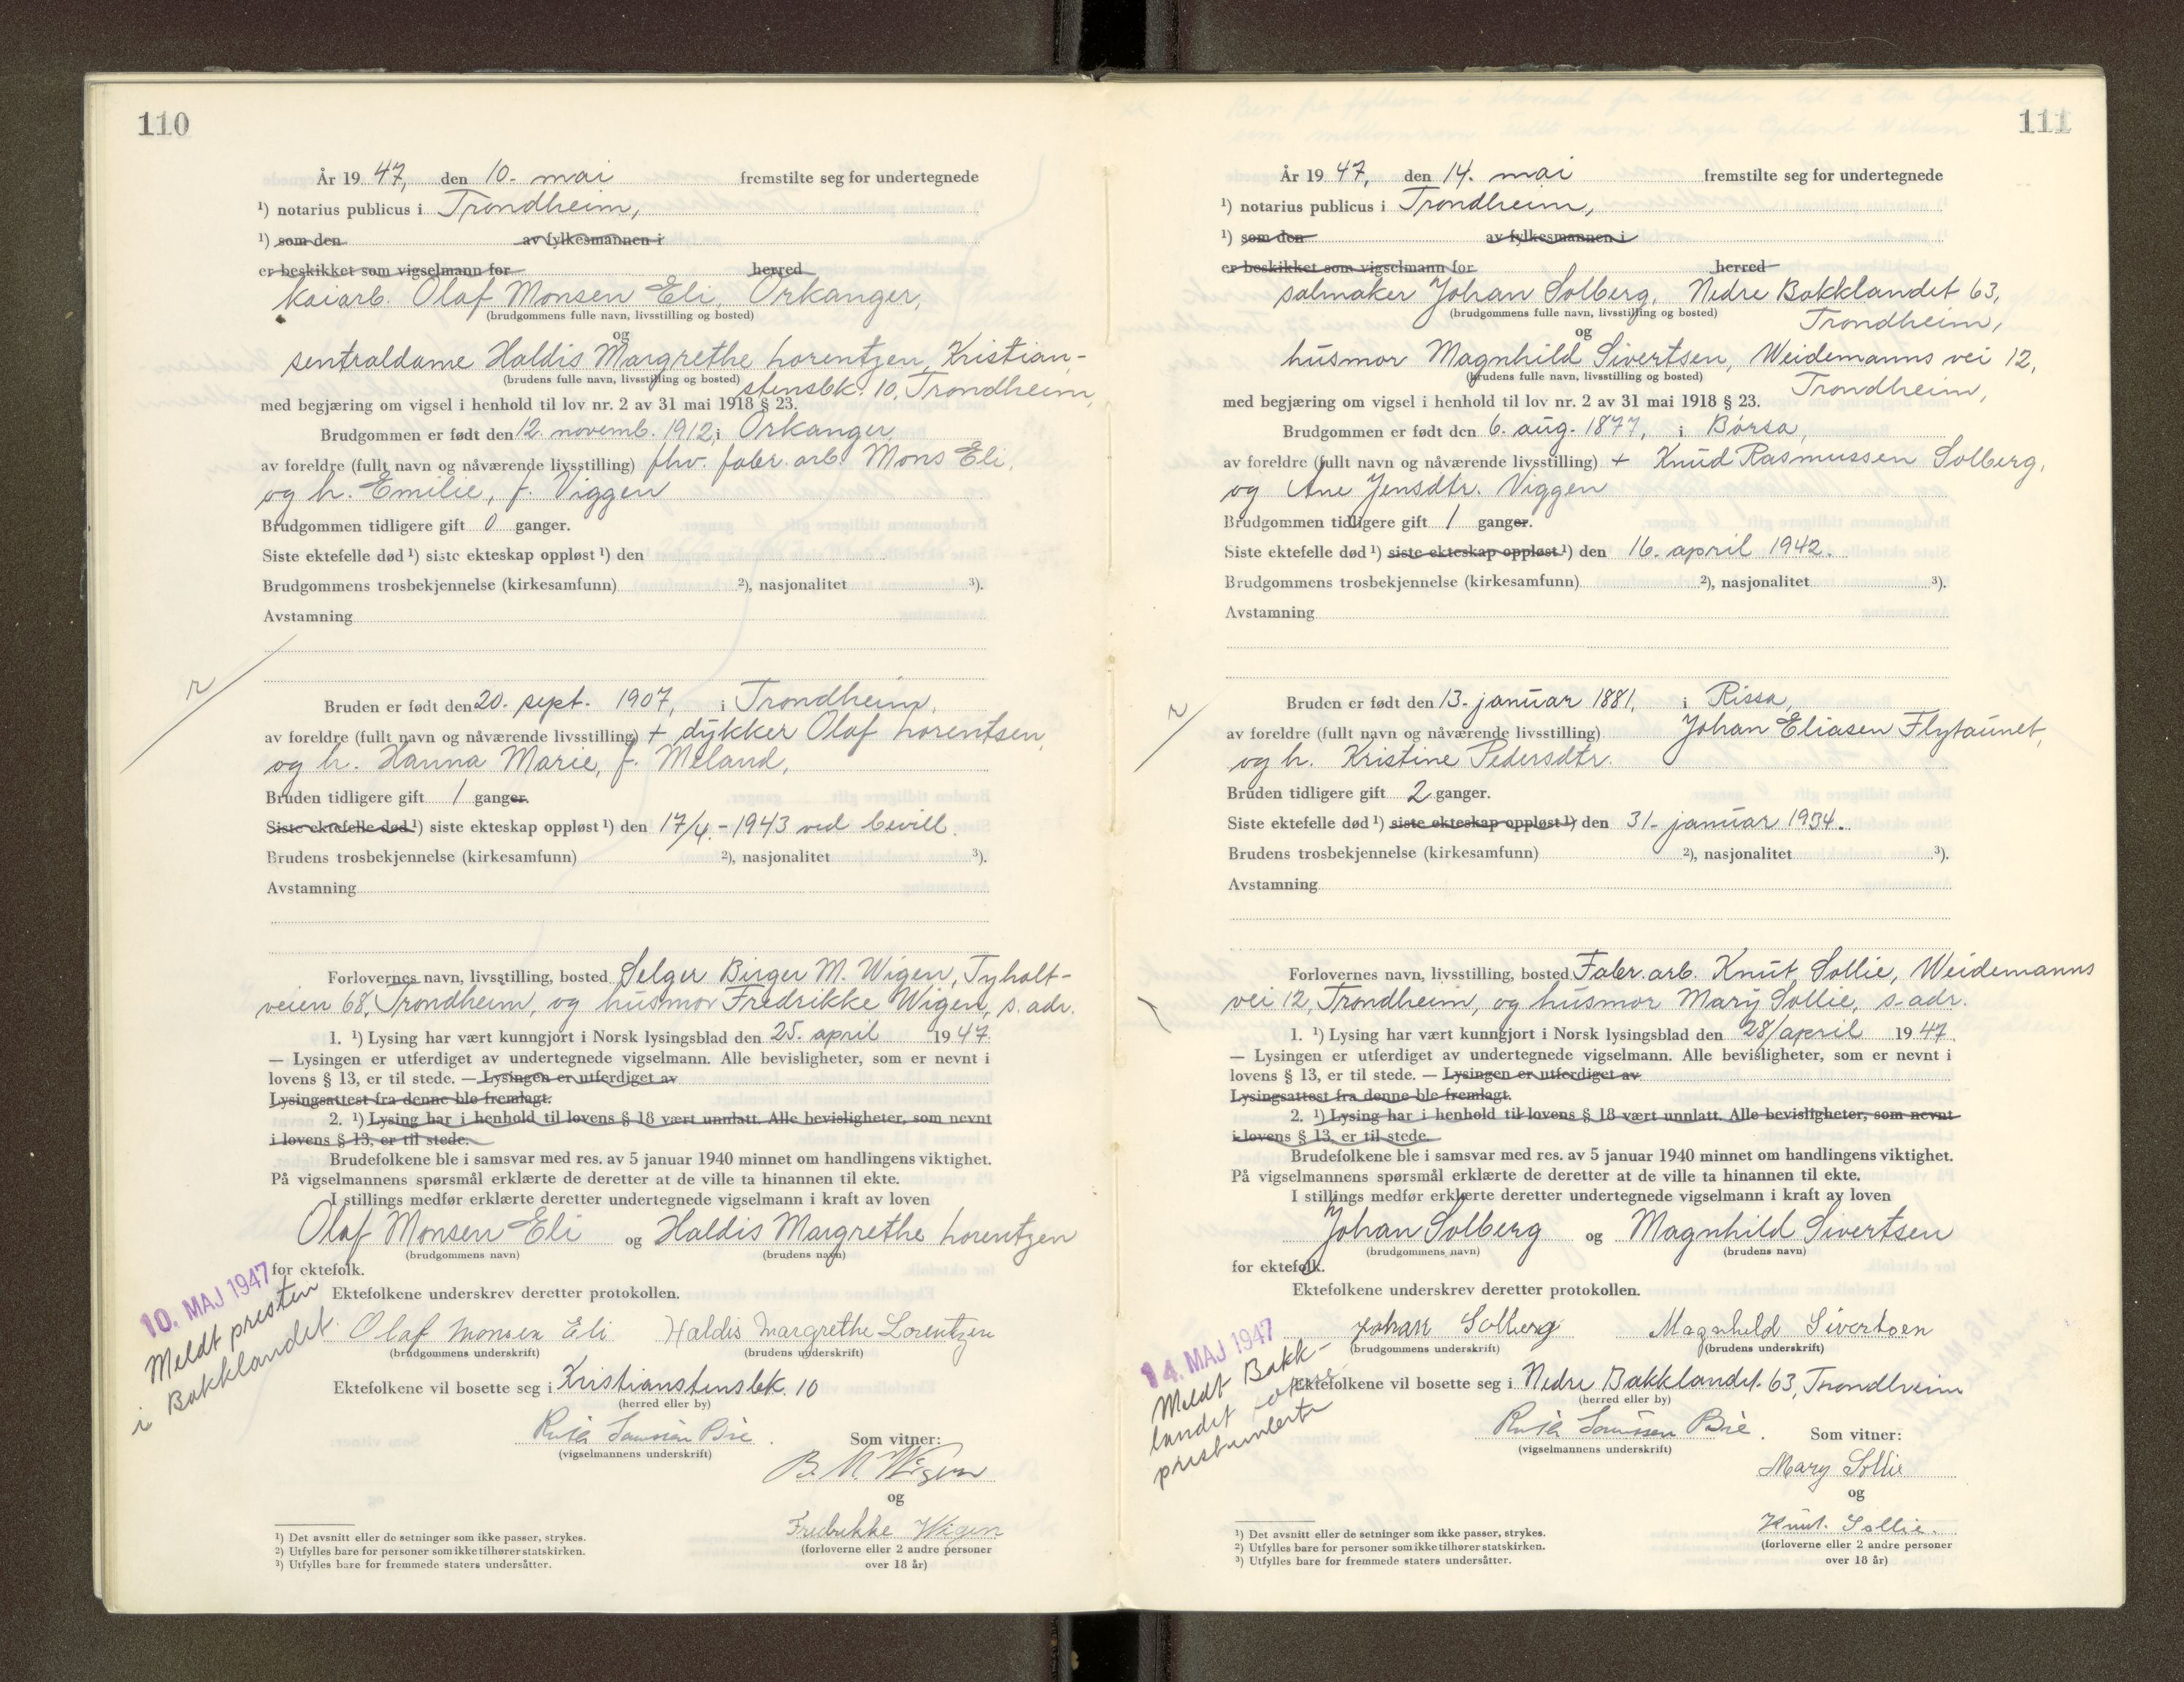 110
År 19 47, den 10. mai fremstilte seg for undertegnede
¹) notarius publicus i Trondheim,
¹) som den av fylkesmannen i
er beskikket som vigselmann for herred
kaiarb. Olaf Monsen Eli, Orkanger,
(brudgommens fulle navn, livsstilling og bosted)
og
sentraldame Haldis Margrethe Lorentzen, Kristian-
(brudens fulle navn, livsstilling og bosted)
stensbk. 10, Trondheim,
med begjæring om vigsel i henhold til lov nr. 2 av 31 mai 1918 § 23.
Brudgommen er født den 12. novemb. 1912, i Orkanger,
av foreldre (fullt navn og nåværende livsstilling) fhv. fabr. arb. Mons Eli,
og h. Emilie, f. Viggen
Brudgommen tidligere gift 0 ganger.
Siste ektefelle død ¹) siste ekteskap oppløst ¹) den
Brudgommens trosbekjennelse (kirkesamfunn) ²), nasjonalitet ³).
Avstamning
Bruden er født den 20. sept. 1907, i Trondheim,
av foreldre (fullt navn og nåværende livsstilling) + dykker Olaf Lorentsen,
og h. Hanna Marie, f. Meland,
Bruden tidligere gift 1 ganger.
Siste ektefelle død ¹) siste ekteskap oppløst ¹) den 17/4.-1943 ved bevill.
Brudens trosbekjennelse (kirkesamfunn) ²), nasjonalitet ³).
Avstamning
Forlovernes navn, livsstilling, bosted Selger Birger M. Wigen, Tyholt-
veien 68, Trondheim, og husmor Fredrikke Wigen, s. adr.
1. ¹) Lysing har vært kunngjort i Norsk lysingsblad den 25. april 19 47.
— Lysingen er utferdiget av undertegnede vigselmann. Alle bevisligheter, som er nevnt i
lovens § 13, er til stede. — Lysingen er utferdiget av
Lysingsattest fra denne ble fremlagt.
2. ¹) Lysing har i henhold til lovens § 18 vært unnlatt. Alle bevisligheter, som nevnt
i lovens § 13, er til stede.
Brudefolkene ble i samsvar med res. av 5 januar 1940 minnet om handlingens viktighet.
På vigselmannens spørsmål erklærte de deretter at de ville ta hinannen til ekte.
I stillings medfør erklærte deretter undertegnede vigselmann i kraft av loven
Olaf Monsen Eli og Haldis Margrethe Lorentzen
(brudgommens navn) (brudens navn)
for ektefolk.
Ektefolkene underskrev deretter protokollen.
10. MAJ 1947
Meldt presten
i Bakklandet.
Olaf Monsen Eli Haldis Margrethe Lorentzen
(brudgommens underskrift) (brudens underskrift)
Ektefolkene vil bosette seg i Kristianstensbk. 10
(herred eller by)
(vigselmannens underskrift) Som vitner:
B. M. Wigen
og
Fredrikke Wigen
(forloverne eller 2 andre personer
over 18 år)
¹) Det avsnitt eller de setninger som ikke passer, strykes.
²) Utfylles bare for personer som ikke tilhører statskirken.
³) Utfylles bare for fremmede staters undersåtter.
111
År 19 47, den 14. mai fremstilte seg for undertegnede
¹) notarius publicus i Trondheim,
¹) som den av fylkesmannen i
er beskikket som vigselmann for herred
salmaker Johan Solberg, Nedre Bakklandet 63,
(brudgommens fulle navn, livsstilling og bosted) Trondheim,
og
husmor Magnhild Sivertsen, Weidemanns vei 12,
(brudens fulle navn, livsstilling og bosted) Trondheim,
med begjæring om vigsel i henhold til lov nr. 2 av 31 mai 1918 § 23.
Brudgommen er født den 6. aug. 1877, i Børsa,
av foreldre (fullt navn og nåværende livsstilling) + Knud Rasmussen Solberg,
og Ane Jensdtr. Viggen
Brudgommen tidligere gift 1 ganger.
Siste ektefelle død ¹) siste ekteskap oppløst ¹) den 16. april 1942.
Brudgommens trosbekjennelse (kirkesamfunn) ²), nasjonalitet ³).
Avstamning
Bruden er født den 13. januar 1881, i Rissa,
av foreldre (fullt navn og nåværende livsstilling) Johan Eliasen Flytaunet,
og h. Kristine Pedersdtr.
Bruden tidligere gift 2 ganger.
Siste ektefelle død ¹) siste ekteskap oppløst ¹) den 31. januar 1934.
Brudens trosbekjennelse (kirkesamfunn) ²), nasjonalitet ³).
Avstamning
Forlovernes navn, livsstilling, bosted Fabr. arb. Knut Sollie, Weidemanns
vei 12, Trondheim, og husmor Mary Sollie, s. adr.
1. ¹) Lysing har vært kunngjort i Norsk lysingsblad den 28/april 19 47.
— Lysingen er utferdiget av undertegnede vigselmann. Alle bevisligheter, som er nevnt i
lovens § 13, er til stede. — Lysingen er utferdiget av
Lysingsattest fra denne ble fremlagt.
2. ¹) Lysing har i henhold til lovens § 18 vært unnlatt. Alle bevisligheter, som nevnt
i lovens § 13, er til stede.
Brudefolkene ble i samsvar med res. av 5 januar 1940 minnet om handlingens viktighet.
På vigselmannens spørsmål erklærte de deretter at de ville ta hinannen til ekte.
I stillings medfør erklærte deretter undertegnede vigselmann i kraft av loven
Johan Solberg og Magnhild Sivertsen
(brudgommens navn) (brudens navn)
for ektefolk.
Ektefolkene underskrev deretter protokollen.
14. MAJ 1947
Meldt Bakk-
landet
Johan Solberg Magnhild Sivertsen
(brudgommens underskrift) (brudens underskrift)
Ektefolkene vil bosette seg i Nedre Bakklandet 63, Trondheim
(herred eller by)
(vigselmannens underskrift) Som vitner:
Mary Sollie
og
Knut. Sollie.
(forloverne eller 2 andre personer
over 18 år)
¹) Det avsnitt eller de setninger som ikke passer, strykes.
²) Utfylles bare for personer som ikke tilhører statskirken.
³) Utfylles bare for fremmede staters undersåtter.